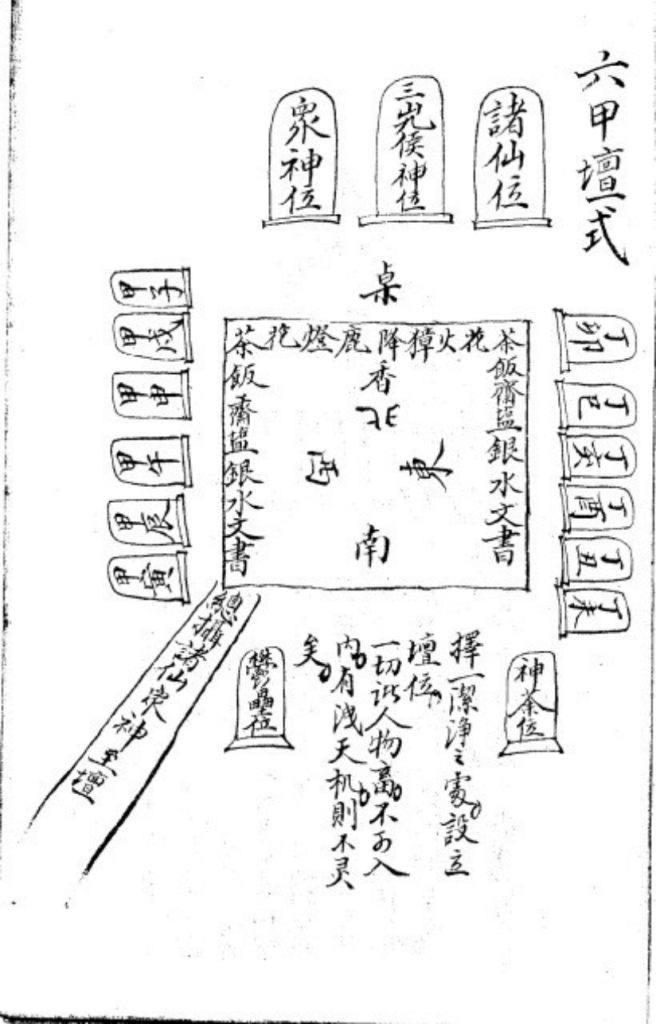 六甲壇式
諸仙位
三光侯神位
眾神位
桌
茶花火獐降鹿燈花茶
飯齋塩銀水文書
香
北
東
西
南
飯齋塩銀水文書
丁卯
丁巳
丁亥
丁酉
丁丑
丁未
甲子
甲戌
甲申
甲午
甲辰
甲寅
神荼位
擇一潔淨之處設立
壇位
一切人物畜不可入
內有洩天机則不灵
矣
鬱壘位
總攝諸仙眾神至壇